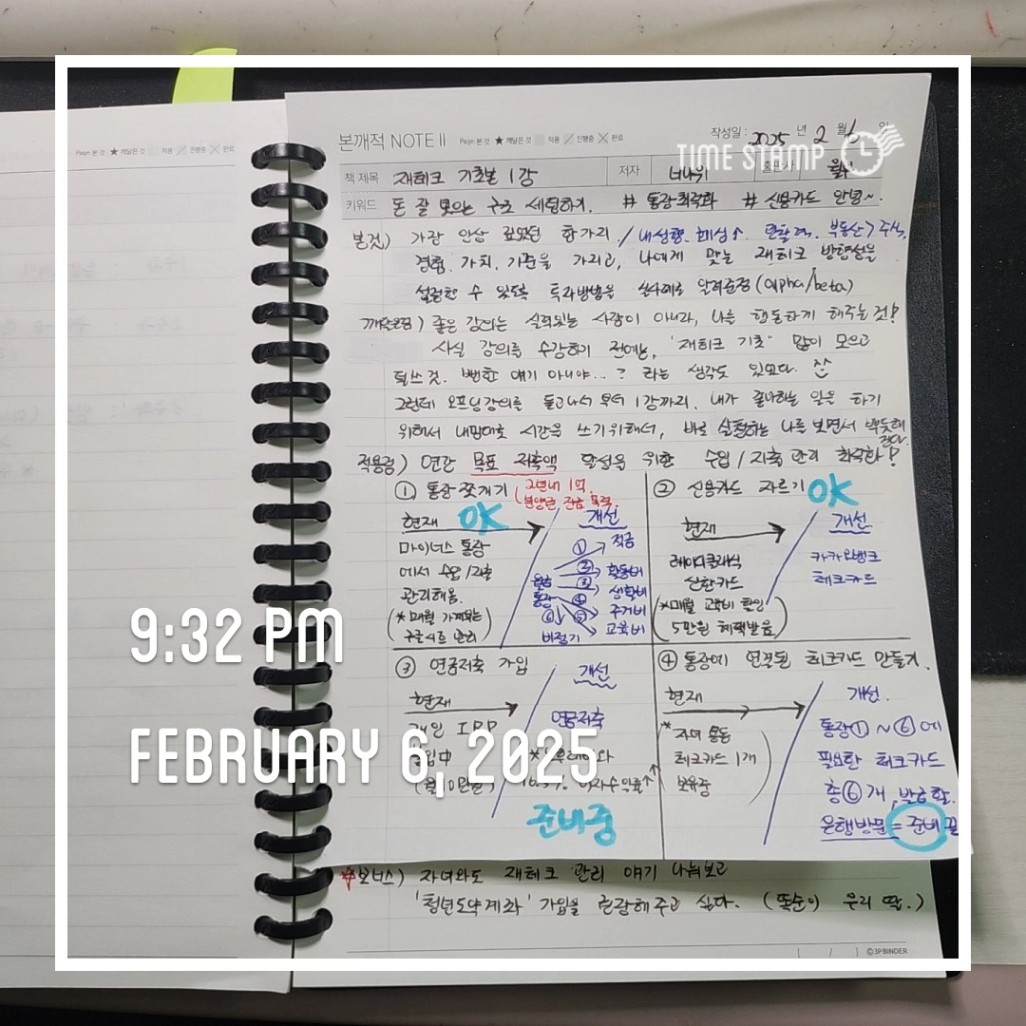 Page 본 것 ★ 깨달은 것 적용 진행중 완료
본깨적 NOTE II Page 본 것 ★ 깨달은 것 적용 진행중 완료
작성일 : 2025 년 2 월 6 일
TIME STAMP
책 제목 재테크 기초반 1강 저자 너나위
키워드 돈 잘 모으는 구조 세팅하기. # 통장최적화 # 신용카드 안녕~
본것) 가장 인상 깊었던 항가리 / 내성향, 부동산 > 주식.
경험, 가치, 기준을 가지고, 나에게 맞는 재테크 방향성을
설정할 수 있도록 투자방법을 알려준점 (alpha/beta)
깨달은점) 좋은 강의는 실력있는 사람이 아니라, 나를 행동하게 해주는 것!
사실 강의를 수강하기 전에는, "재테크 기초" 많이 모으고
덜쓰 것. 뻔한 얘기 아니야..? 라는 생각도 있었다.
그런데 오프닝강의를 듣고나서 부터 1강까지, 내가 좋아하는 일을 하기
위해서 내맘대로 시간을 쓰기위해서, 바로 실행하는 나를 보면서 뿌듯해
졌다.
적용점) 연간 목표 저축액 달성을 위한 수입/지출 관리 최적화!
① 통장쪼개기
2년내 1억.
분양권 잔금 목적
OK
현재
마이너스 통장
에서 수입/지출
관리해옴.
(* 매월 가계부는
구글시트 관리)
개선
월급
통장
① 적금
② 활동비
③ 생활비
④ 주거비
⑤ 교육비
⑥ 비정기
② 신용카드 자르기 OK
현재
레이디클래식
신한카드
(* 매월 교육비 할인
5만원 혜택받음)
개선
카카오뱅크
체크카드
③ 연금저축 가입
현재
개인 IRP
(월 10만원)
개선
연금저축
준비중
④ 통장에 연결된 체크카드 만들기.
현재
* 자녀 용돈
체크카드 1개
보유중
개선.
통장① ~ ⑥에
필요한 체크카드
총⑥개, 발급함.
은행방문 = 준비 끝
* 보너스) 자녀와도 재테크 관리 얘기 나눠보고
'청년도약계좌' 가입을 권장해주고 싶다. (똑순이 우리 딸.)
©3PBINDER
9:32 PM
FEBRUARY 6, 2025